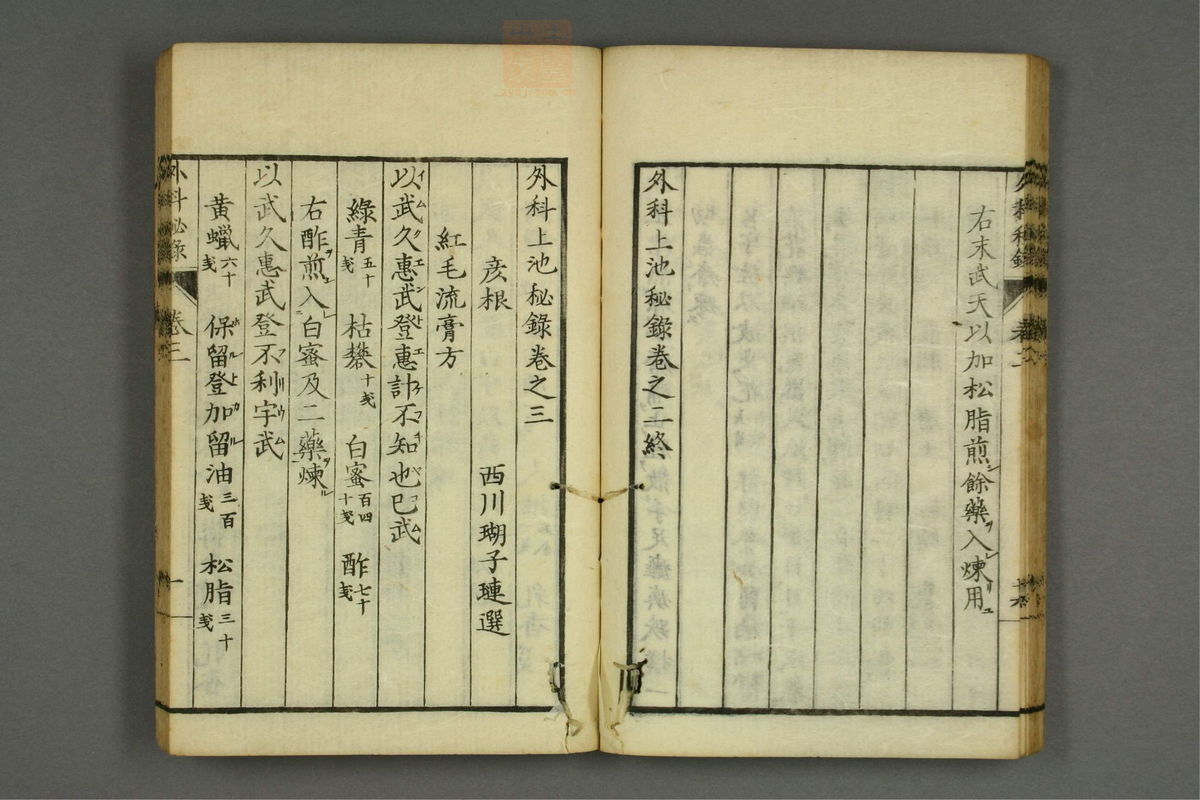 右末武天以加松脂煎シ餘藥ヲ入レ煉リ用ユ
外科上池秘錄卷之二終
外科上池秘錄卷之三
彦根 西川瑚子璉選
紅毛流膏方
以武久惠武登惠計不知也巴武
綠青五十戔 枯礬十戔 白蜜百四十戔 酢七十戔
右酢ヲ煎シ入レ白蜜及二藥ヲ煉ル
以武久惠武登不利宇武
黄蠟六十戔 保留登加留油三百戔 松脂三十戔
外科秘录 卷三 一